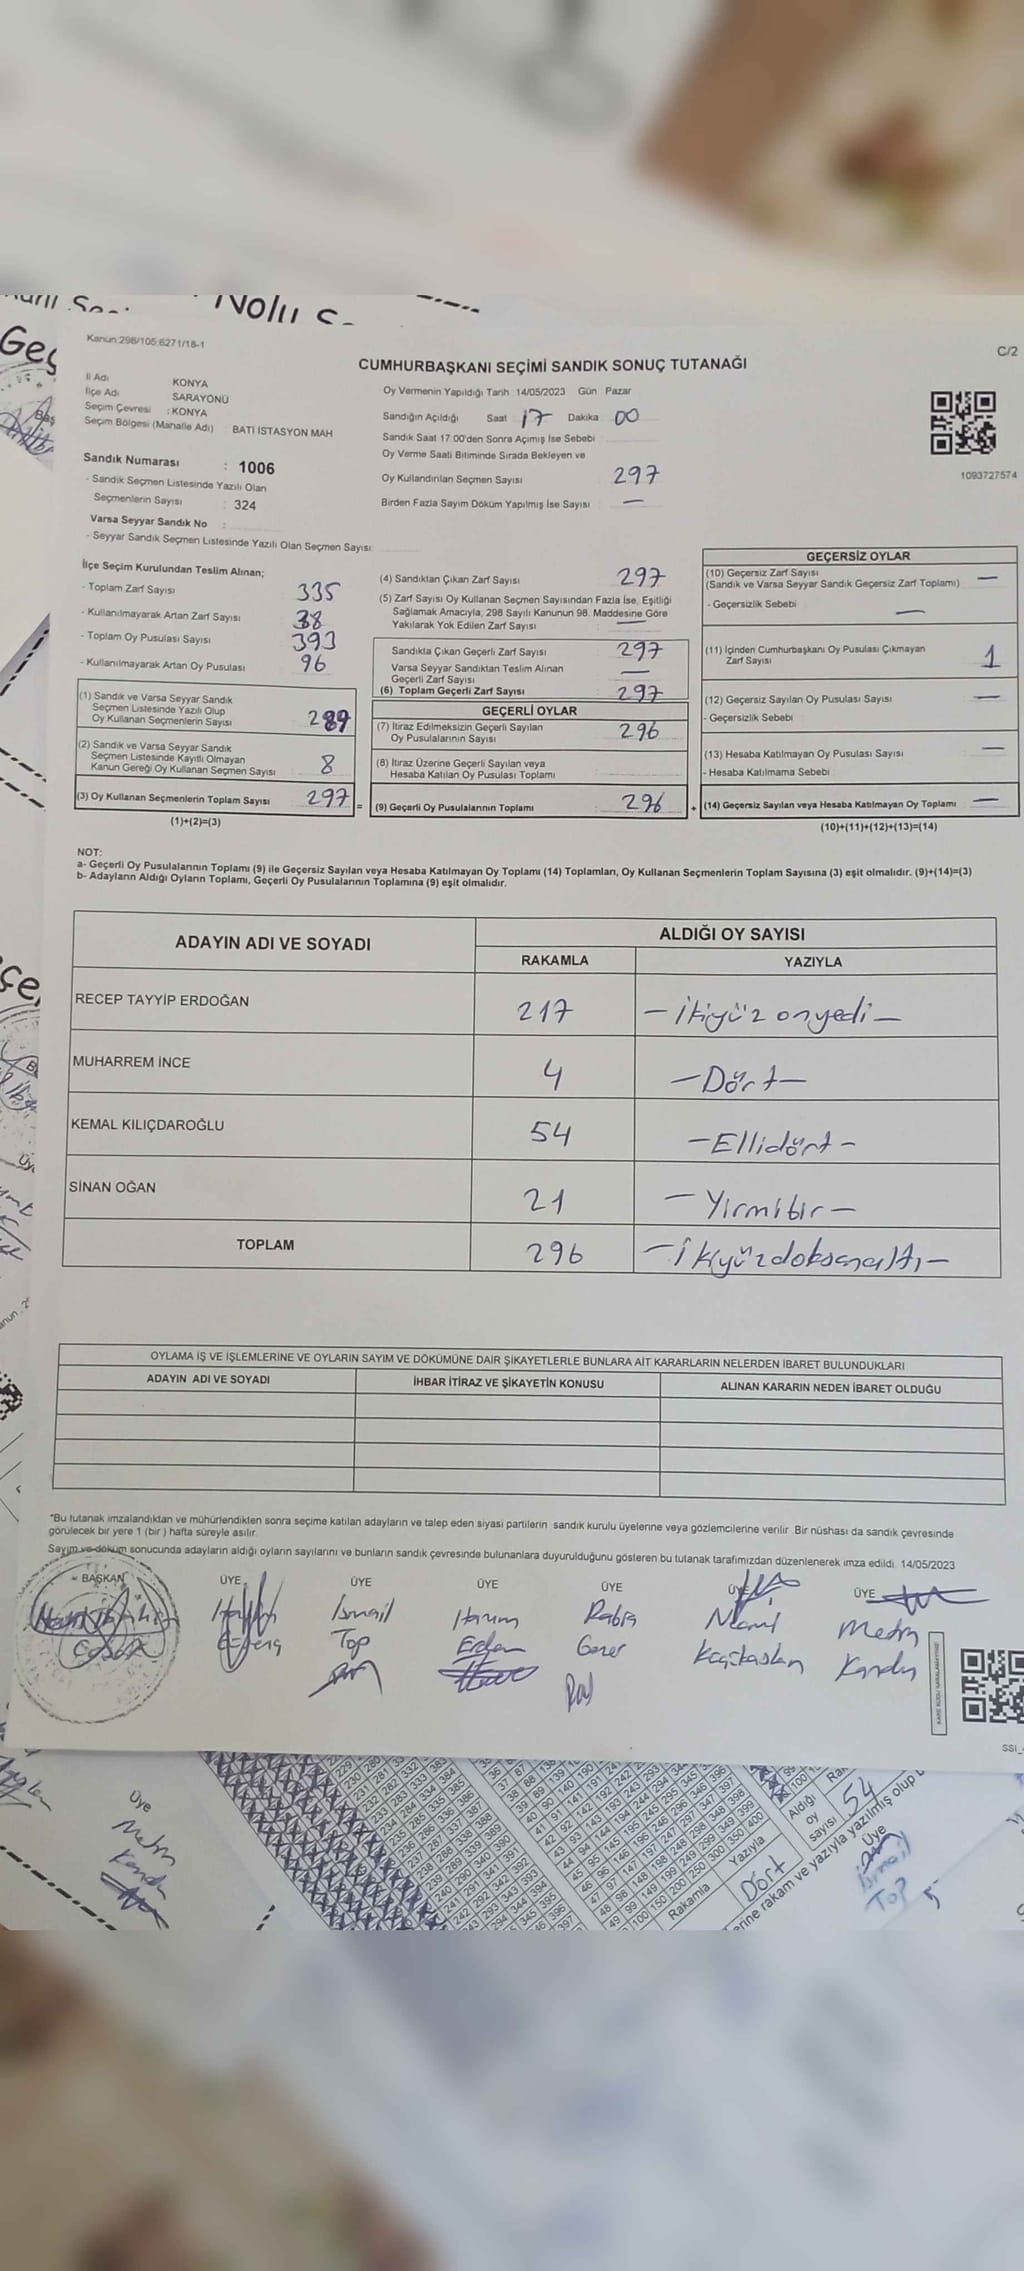 Nolu S
Geç
Kanun:298/105:6271/18-1
C/2
CUMHURBAŞKANI SEÇİMİ SANDIK SONUÇ TUTANAĞI
İl Adı KONYA
İlçe Adı SARAYÖNÜ
Seçim Çevresi : KONYA
Seçim Bölgesi (Mahalle Adı) : BATI İSTASYON MAH
Oy Vermenin Yapıldığı Tarih 14/05/2023 Gün Pazar
Sandığın Açıldığı Saat 17 Dakika 00
Sandık Saat 17 00'den Sonra Açımış İse Sebebi
Oy Verme Saati Bitiminde Sırada Bekleyen ve
Oy Kullandırılan Seçmen Sayısı 297
Birden Fazla Sayım Döküm Yapılmış İse Sayısı —
1093727574
Sandık Numarası : 1006
- Sandık Seçmen Listesinde Yazılı Olan
Seçmenlerin Sayısı : 324
Varsa Seyyar Sandık No :
- Seyyar Sandık Seçmen Listesinde Yazılı Olan Seçmen Sayısı:
İlçe Seçim Kurulundan Teslim Alınan;
- Toplam Zarf Sayısı 335
- Kullanılmayarak Artan Zarf Sayısı 38
- Toplam Oy Pusulası Sayısı 393
- Kullanılmayarak Artan Oy Pusulası 96
(1) Sandık ve Varsa Seyyar Sandık
Seçmen Listesinde Yazılı Olup
Oy Kullanan Seçmenlerin Sayısı 289
(2) Sandık ve Varsa Seyyar Sandık
Seçmen Listesinde Kayıtlı Olmayan
Kanun Gereği Oy Kullanan Seçmen Sayısı 8
(3) Oy Kullanan Seçmenlerin Toplam Sayısı 297 =
(1)+(2)=(3)
(4) Sandıktan Çıkan Zarf Sayısı 297
(5) Zarf Sayısı Oy Kullanan Seçmen Sayısından Fazla İse, Eşitliği
Sağlamak Amacıyla, 298 Sayılı Kanunun 98. Maddesine Göre
Yakılarak Yok Edilen Zarf Sayısı : —
Sandıkta Çıkan Geçerli Zarf Sayısı 297
Varsa Seyyar Sandıktan Teslim Alınan
Geçerli Zarf Sayısı —
(6) Toplam Geçerli Zarf Sayısı : 297
GEÇERLİ OYLAR
(7) İtiraz Edilmeksizin Geçerli Sayılan
Oy Pusulalarının Sayısı 296
(8) İtiraz Üzerine Geçerli Sayılan veya
Hesaba Katılan Oy Pusulası Toplamı
(9) Geçerli Oy Pusulalarının Toplamı : 296 +
GEÇERSİZ OYLAR
(10) Geçersiz Zarf Sayısı
(Sandık ve Varsa Seyyar Sandık Geçersiz Zarf Toplamı) —
- Geçersizlik Sebebi —
(11) İçinden Cumhurbaşkanı Oy Pusulası Çıkmayan
Zarf Sayısı 1
(12) Geçersiz Sayılan Oy Pusulası Sayısı —
- Geçersizlik Sebebi
(13) Hesaba Katılmayan Oy Pusulası Sayısı —
- Hesaba Katılmama Sebebi
(14) Geçersiz Sayılan veya Hesaba Katılmayan Oy Toplamı —
(10)+(11)+(12)+(13)=(14)
NOT:
a- Geçerli Oy Pusulalarının Toplamı (9) ile Geçersiz Sayılan veya Hesaba Katılmayan Oy Toplamı (14) Toplamları, Oy Kullanan Seçmenlerin Toplam Sayısına (3) eşit olmalıdır. (9)+(14)=(3)
b- Adayların Aldığı Oyların Toplamı, Geçerli Oy Pusulalarının Toplamına (9) eşit olmalıdır.
ADAYIN ADI VE SOYADI
ALDIĞI OY SAYISI
RAKAMLA YAZIYLA
RECEP TAYYİP ERDOĞAN 217 — İkiyüz onyedi —
MUHARREM İNCE 4 — Dört —
KEMAL KILIÇDAROĞLU 54 — Ellidört —
SİNAN OĞAN 21 — Yirmibir —
TOPLAM 296 — İkiyüzdoksanaltı —
OYLAMA İŞ VE İŞLEMLERİNE VE OYLARIN SAYIM VE DÖKÜMÜNE DAİR ŞİKAYETLERLE BUNLARA AİT KARARLARIN NELERDEN İBARET BULUNDUKLARI
ADAYIN ADI VE SOYADI İHBAR İTİRAZ VE ŞİKAYETİN KONUSU ALINAN KARARIN NEDEN İBARET OLDUĞU
*Bu tutanak imzalandıktan ve mühürlendikten sonra seçime katılan adayların ve talep eden siyasi partilerin sandık kurulu üyelerine veya gözlemcilerine verilir. Bir nüshası da sandık çevresinde
görülecek bir yere 1 (bir ) hafta süreyle asılır.
Sayım ve döküm sonucunda adayların aldığı oyların sayılarını ve bunların sandık çevresinde bulunanlara duyurulduğunu gösteren bu tutanak tarafımızdan düzenlenerek imza edildi. 14/05/2023
BAŞKAN ÜYE ÜYE ÜYE ÜYE ÜYE ÜYE
İsmail Harun Rabia Metin
Top
SSI
Üye
Metin
Yazıyla
Rakamla
Dört
Aldığı
oy
sayısı
54
erine rakam ve yazıyla yazılmış olup
Üye
İsmail
Top